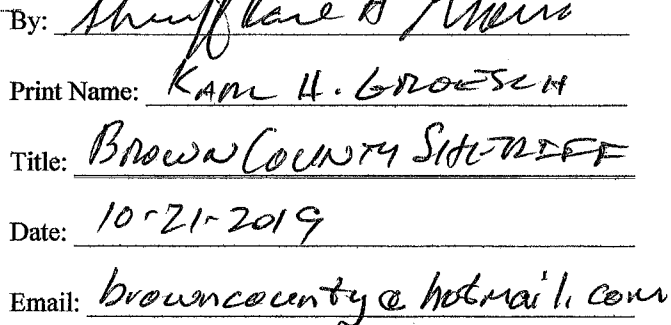 By: Sheriff Karl H
Print Name: KARL H. GROESCH
Title: BROWN COUNTY SHERIFF
Date: 10-21-2019
Email: browncounty@hotmail.com